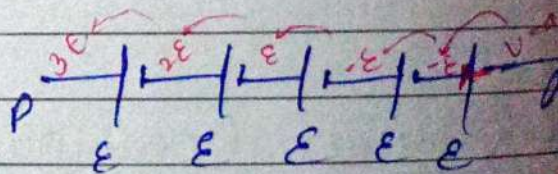 3ε 2ε ε -ε -ε
P
ε ε ε ε ε